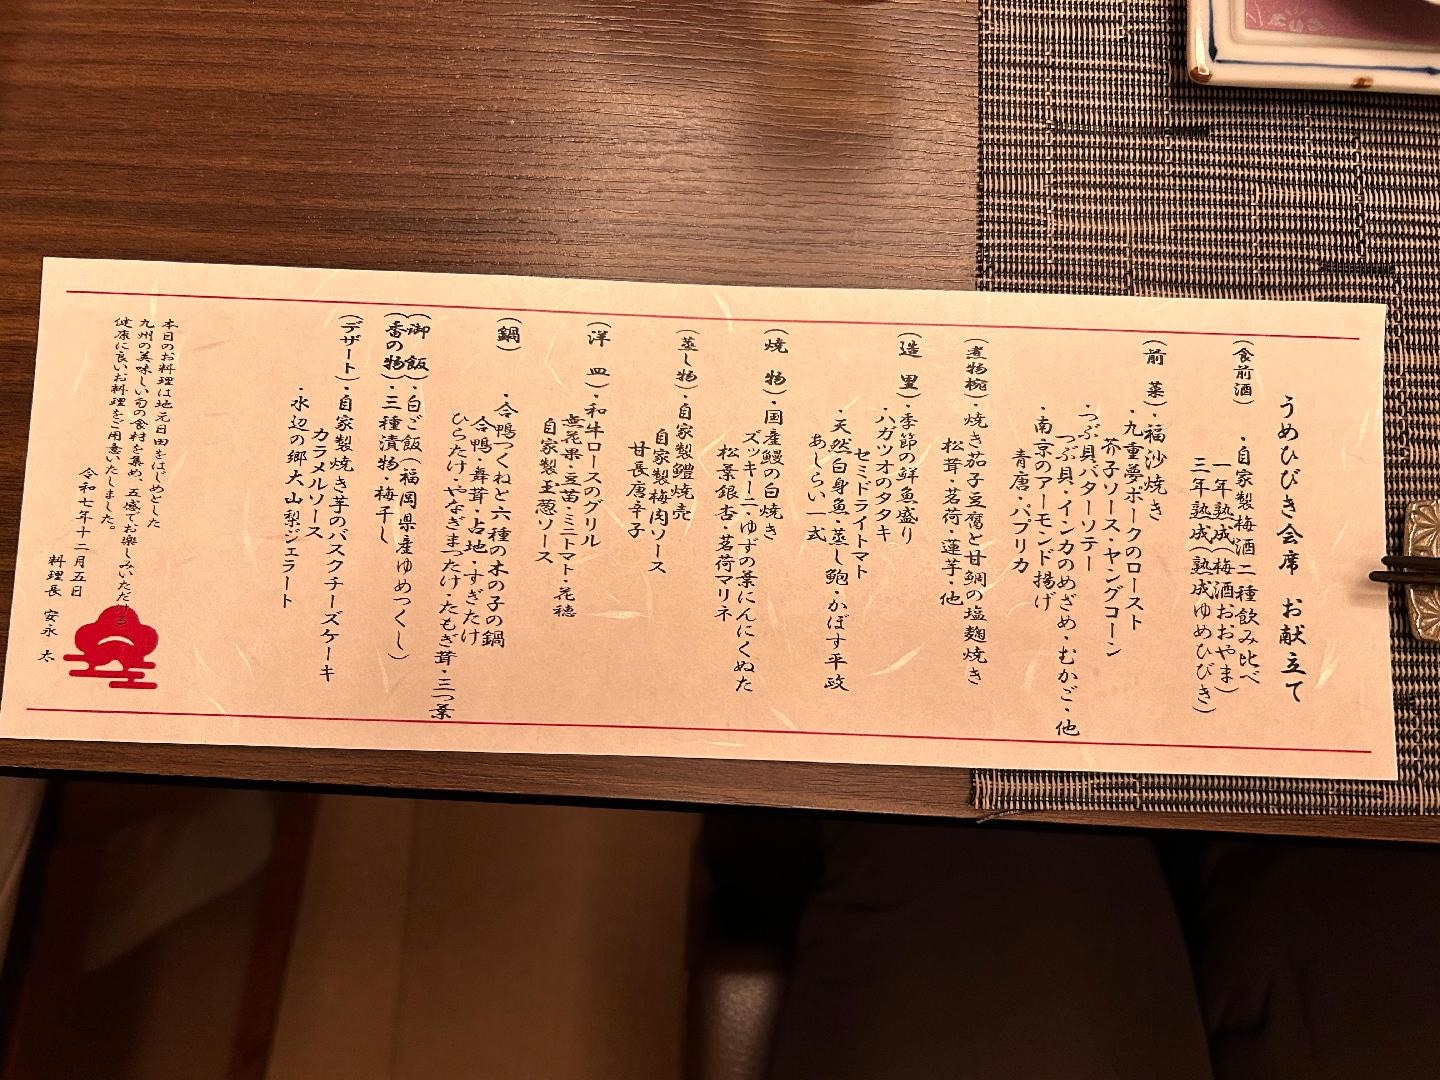 うめひびき会席 お献立て
（食前酒）・自家製梅酒二種飲み比べ
一年熟成（梅酒おおやま）
三年熟成（熟成ゆめひびき）
（前菜）・福沙焼き
・九重夢ポークのロースト
芥子ソース・ヤングコーン
・つぶ貝バターソテー
つぶ貝・インカのめざめ・むかご・他
・南京のアーモンド揚げ
青唐・パプリカ
（煮物椀）・焼き茄子豆腐と甘鯛の塩麹焼き
松茸・茗荷・蓮芋・他
（造里）・季節の鮮魚盛り
・ハガツオのタタキ
セミドライトマト
・天然白身魚・蒸し鮑・かぼす平政
あしらい一式
（焼物）・国産鰻の白焼き
ズッキーニ・ゆずの葉にんにくぬた
松葉銀杏・茗荷マリネ
（蒸し物）・自家製鱧焼売
自家製梅肉ソース
甘長唐辛子
（洋皿）・和牛ロースのグリル
無花果・豆苗・ミニトマト・花穂
自家製玉葱ソース
（鍋）・合鴨つくねと六種の木の子の鍋
合鴨・舞茸・占地・すぎたけ
ひらたけ・やなぎまつたけ・たもぎ茸・三つ葉
（御飯）・白ご飯（福岡県産ゆめつくし）
（香の物）・三種漬物・梅干し
（デザート）・自家製焼き芋のバスクチーズケーキ
カラメルソース
・水辺の郷大山梨ジェラート
本日のお料理は地元日田をはじめとした
九州の美味しい旬の食材を集め、五感でお楽しみいただける
健康に良いお料理をご用意いたしました。
令和七年十二月五日
料理長 安永 太